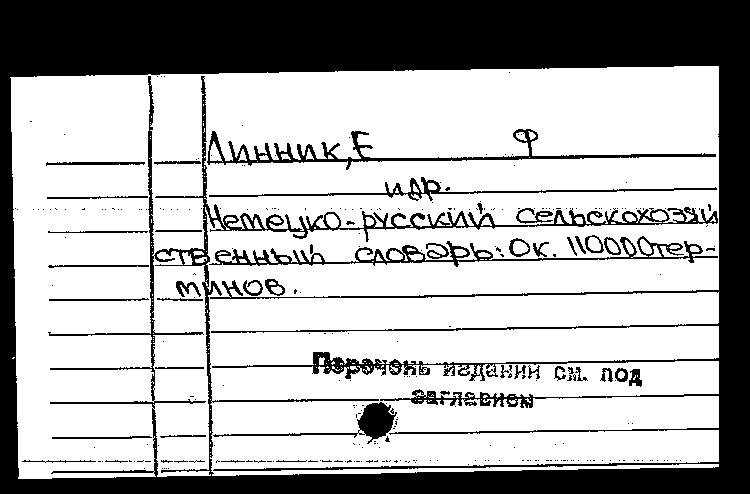 Линник, Е Ф
и др.
Немецко-русский сельскохозяй
ственный словарь: Ок. 110000 тер-
минов.
Перечень изданий см. под
заглавием